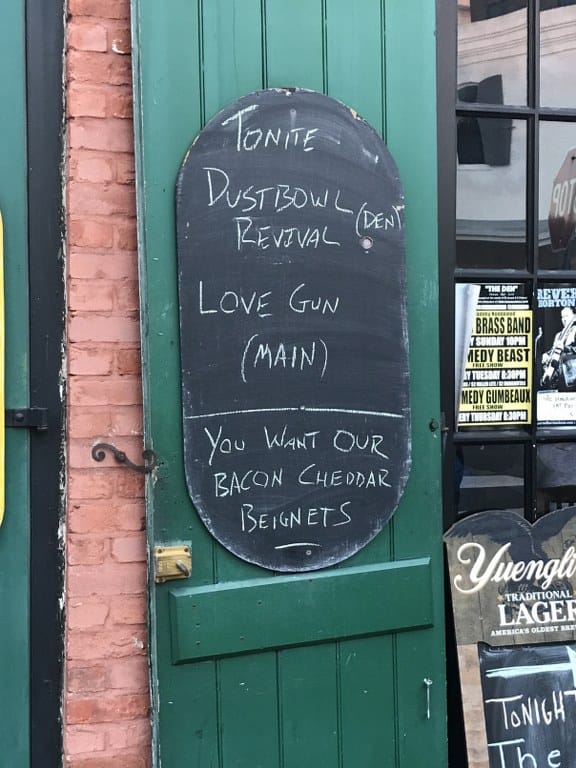 TONITE
DUSTBOWL
REVIVAL (DEN)
LOVE GUN
(MAIN)
YOU WANT OUR
BACON CHEDDAR
BEIGNETS
"THE DEN"
BRASS BAND
SUNDAY 10PM
MEDY BEAST
FREE SHOW
TUESDAY 8:30PM
MEDY GUMBEAUX
FREE SHOW
TUESDAY 8:30PM
REVER
HORTON
Yuengli
TRADITIONAL
LAGER
AMERICA'S OLDEST BRE
TONIGHT
The